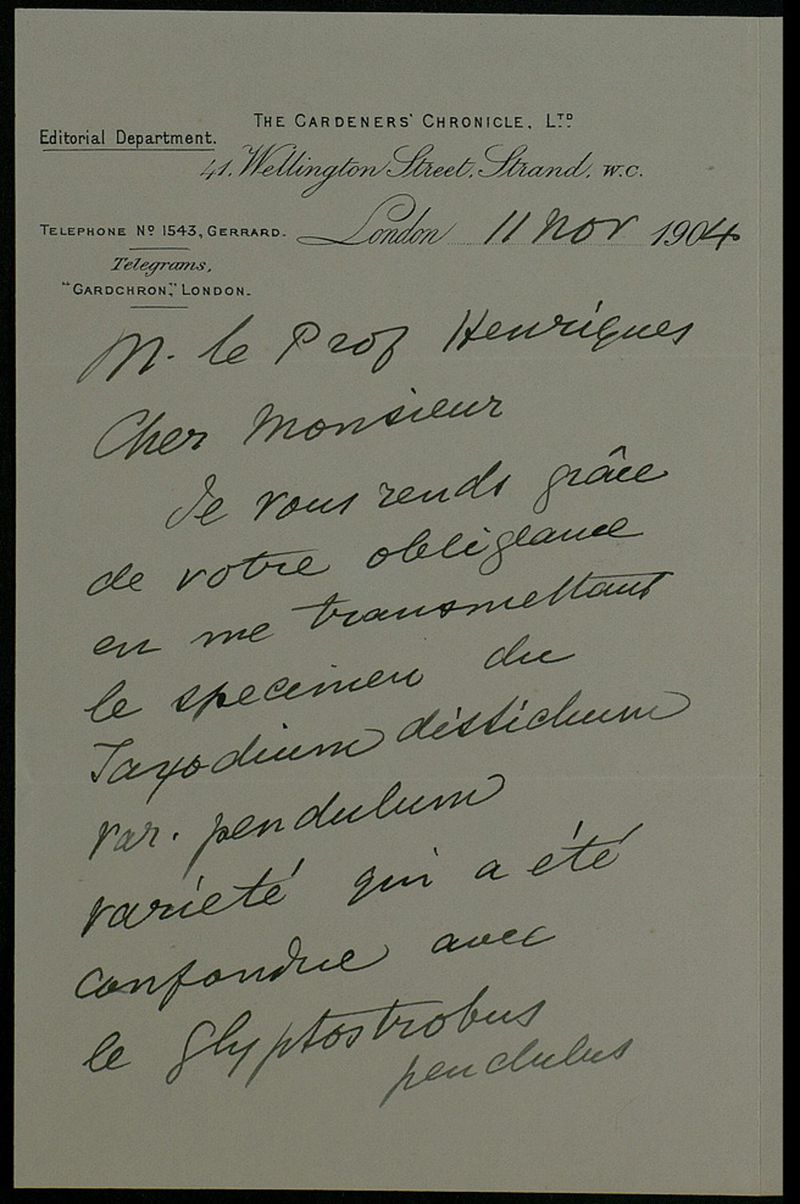 THE GARDENERS' CHRONICLE, LTD.
Editorial Department.
41, Wellington Street, Strand, W.C.
TELEPHONE No 1543, GERRARD.
London 11 Nov 1904
Telegrams,
"GARDCHRON," LONDON.
M. le Prof Henriques
Cher Monsieur
Je vous rends grâce
de votre obligeance
en me transmettant
le specimen du
Taxodium distichum
var. pendulum
varieté qui a été
confondue avec
le Glyptostrobus
pendulus